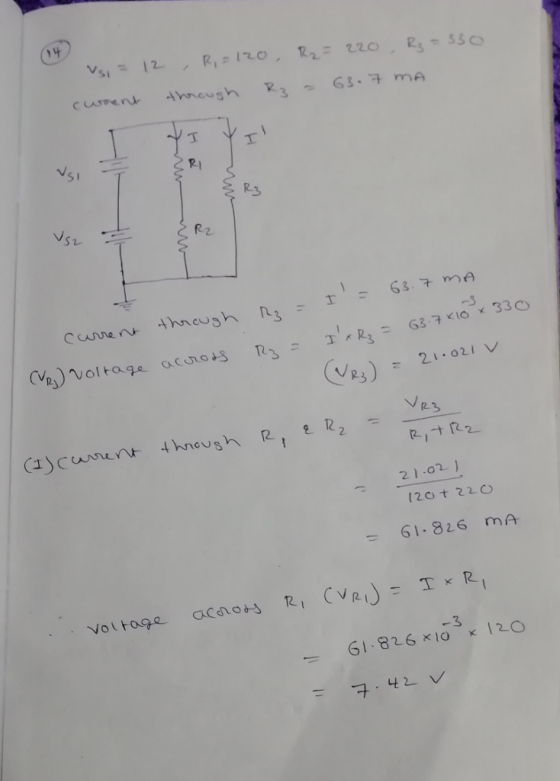 14
Vs1 = 12 , R1 = 120, R2 = 220, R3 = 330
current through R3 = 63.7 mA
I
I'
Vs1
R1
R3
Vs2
R2
Current through R3 = I' = 63.7 mA
(VR3) Voltage across R3 = I' × R3 = 63.7×10⁻³ × 330
(VR3) = 21.021 V
(I) Current through R1 & R2 = VR3 / R1 + R2
= 21.021 / 120 + 220
= 61.826 mA
∴ Voltage across R1 (VR1) = I × R1
= 61.826 × 10⁻³ × 120
= 7.42 V